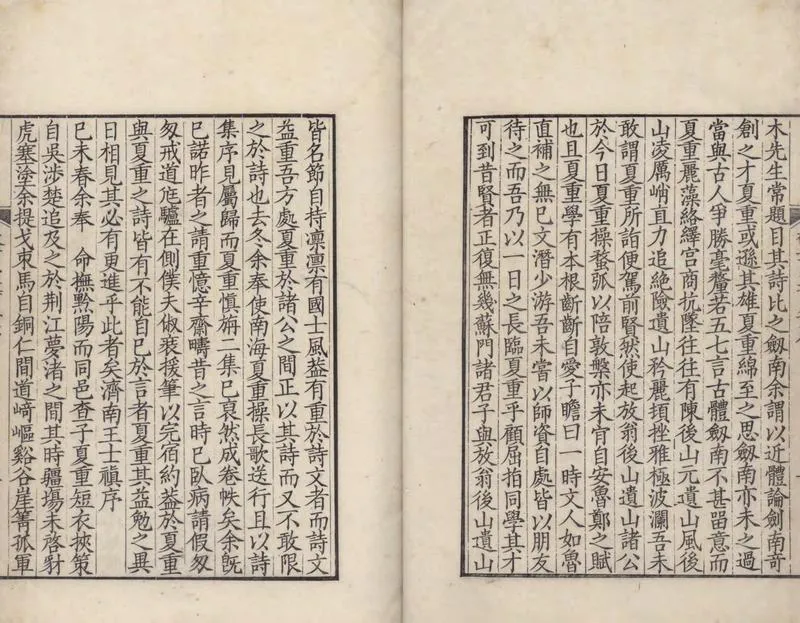 木先生常題目其詩比之劍南余謂以近體論劍南奇
創之才夏重或遜其雄夏重綿至之思劍南亦未之過
當與古人爭勝毫釐若五七言古體劍南不甚畱意而
夏重麗藻絡繹宮商抗墜往往有陳後山元遺山風後
山凌厲峭直力追絶險遺山矜麗頓挫雅極波瀾吾未
敢謂夏重所詣便駕前賢然使起放翁後山遺山諸公
於今日夏重操蝥弧以陪敦槃亦未肎自安魯鄭之賦
也且夏重學有本根齗齗自愛子瞻曰一時文人如魯
直補之無已文潛少游吾未嘗以師資自處皆以朋友
待之而吾乃以一日之長臨夏重乎顧屈指同學其才
可到昔賢者正復無幾蘇門諸君子與放翁後山遺山
皆名節自持凜凜有國士風葢有重於詩文者而詩文
益重吾方處夏重於諸公之間正以其詩而又不敢限
之於詩也去冬余奉使南海夏重操長歌送行且以詩
集序見屬歸而夏重慎旃二集已裒然成卷帙矣余旣
已諾昨者之請重憶辛齋疇昔之言時已臥病請假匆
匆戒道㡯驢在側僕夫俶裝援筆以完宿約葢於夏重
與夏重之詩皆有不能自已於言者夏重其益勉之異
日相見其必有更進乎此者矣濟南王士禛序
已未春余奉　命撫黔陽而同邑查子夏重短衣挾策
自吳涉楚追及之於荆江夢渚之間其時疆場未啓豺
虎塞塗余提戈束馬自銅仁間道﨑嶇谿谷崖箐孤軍